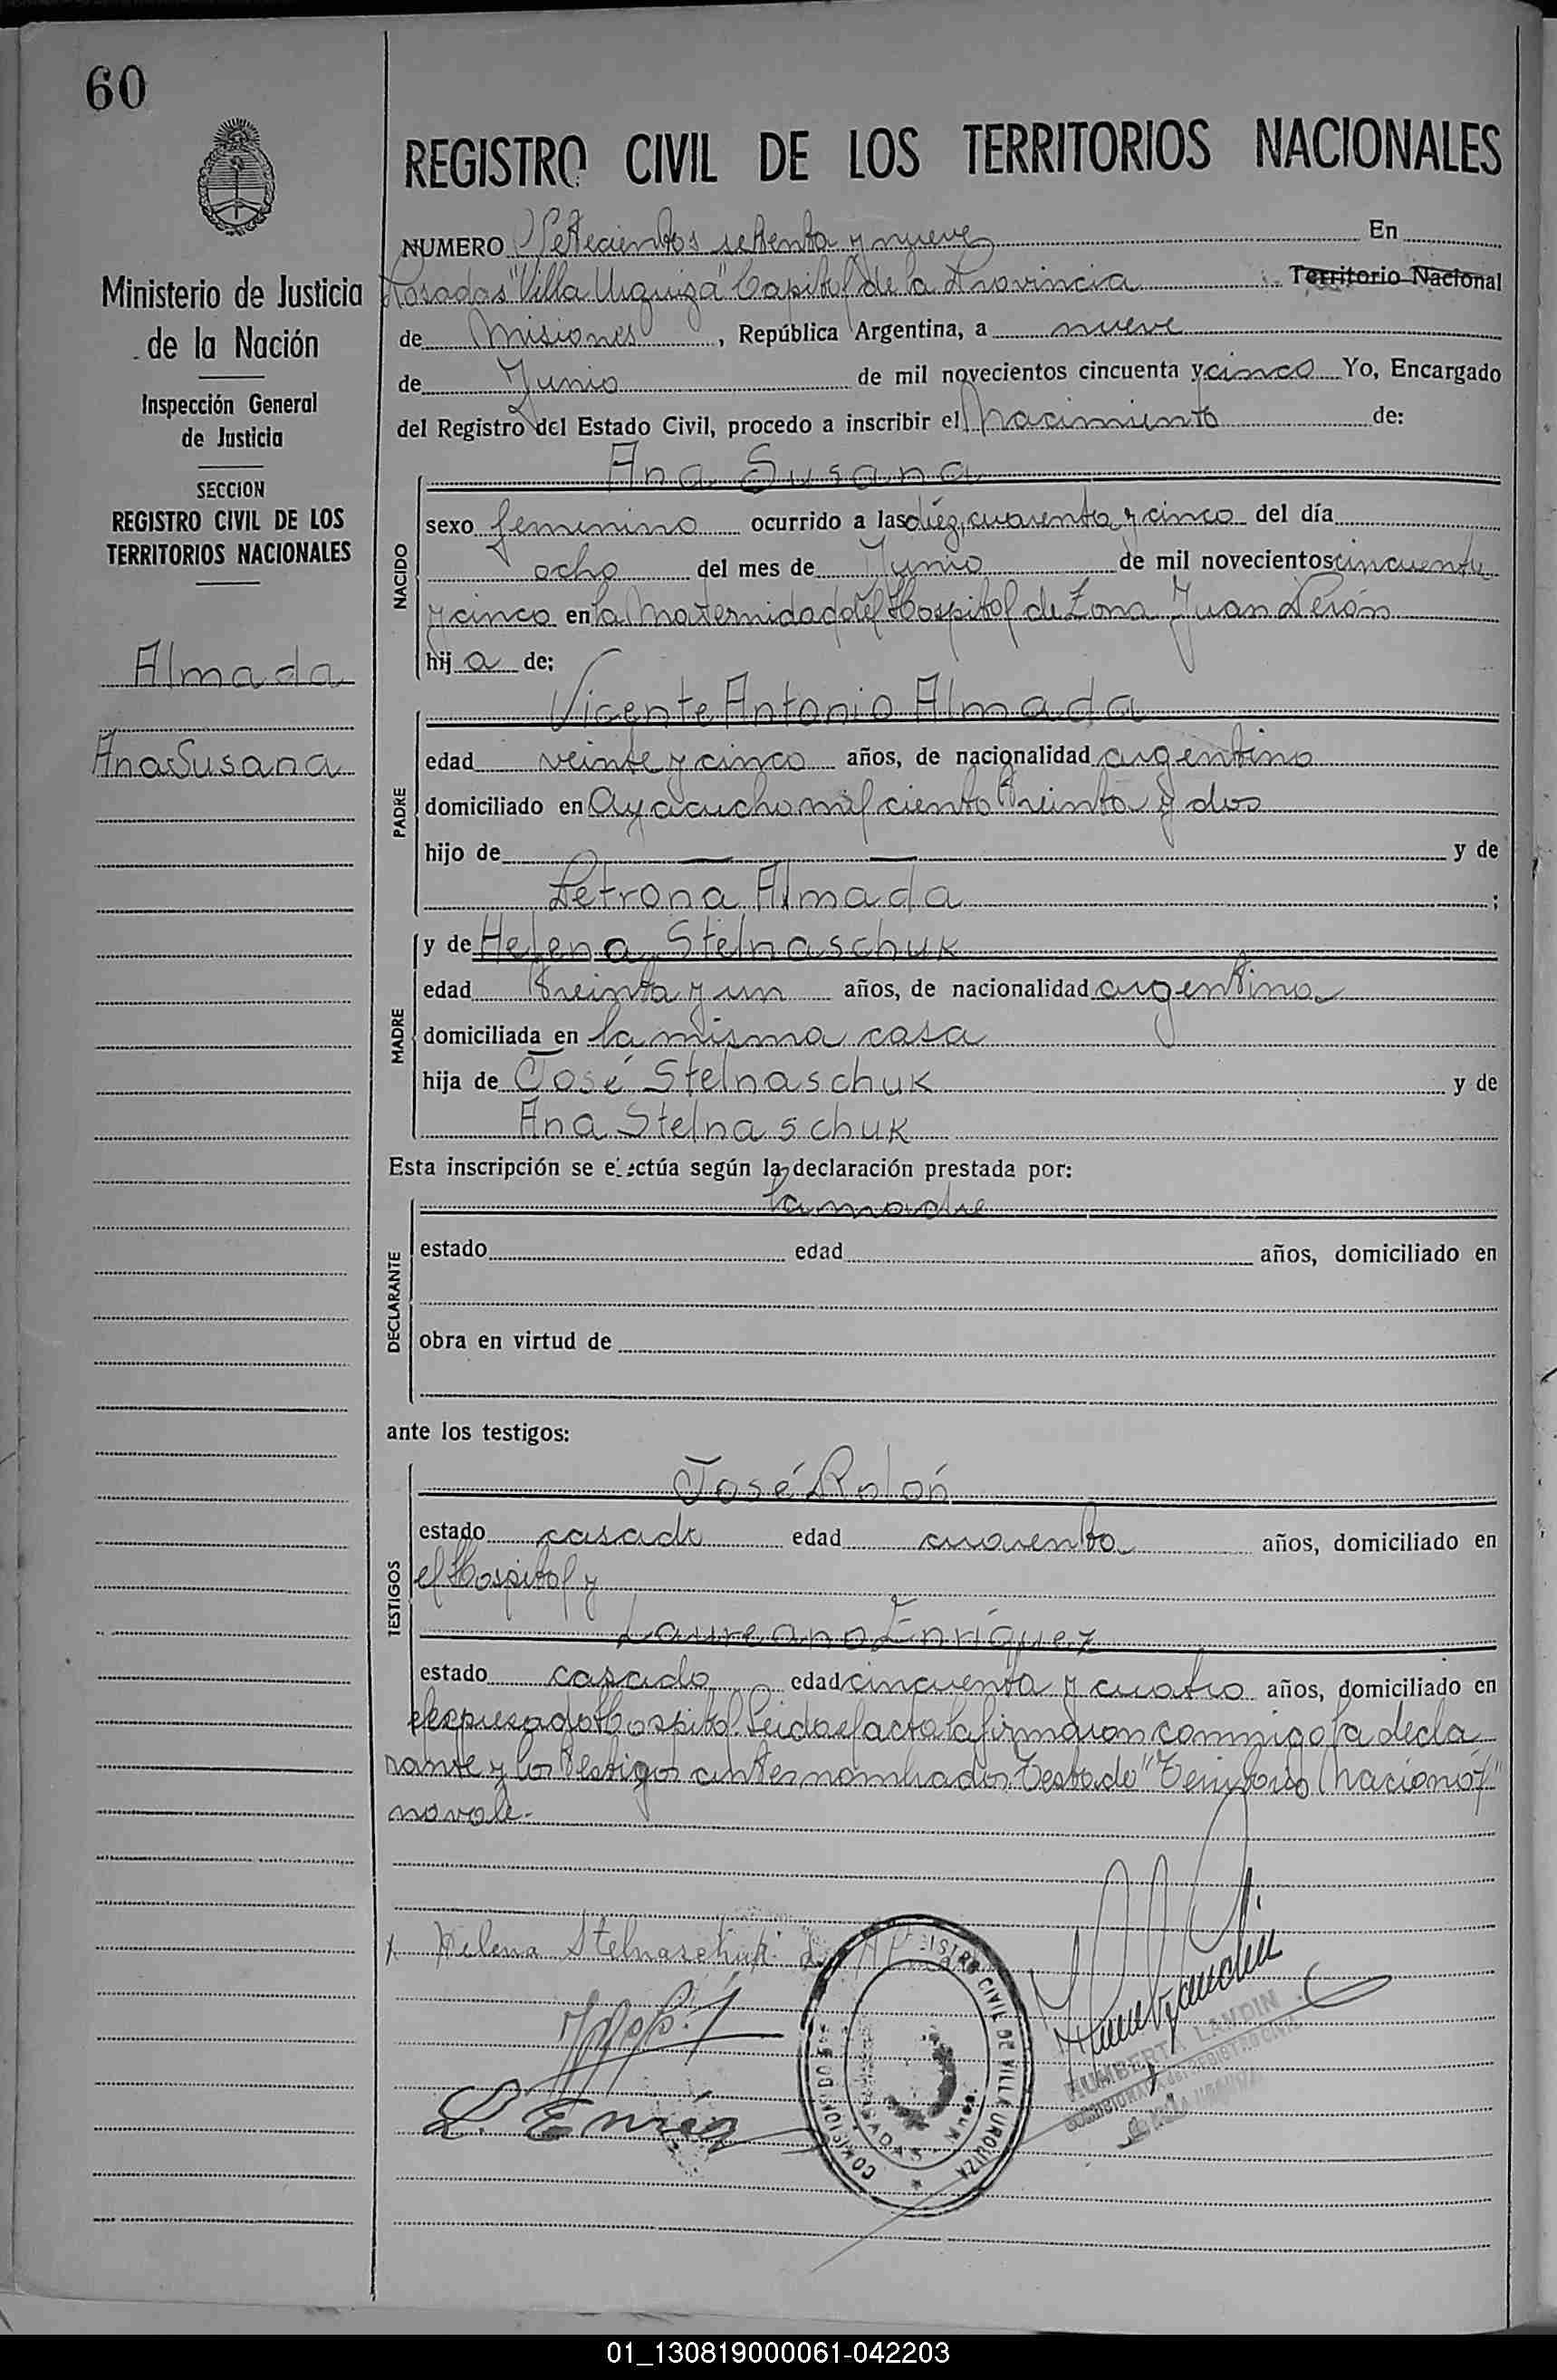 60
Ministerio de Justicia
de la Nación
Inspección General
de Justicia
SECCION
REGISTRO CIVIL DE LOS
TERRITORIOS NACIONALES
Almada
Ana Susana
REGISTRO CIVIL DE LOS TERRITORIOS NACIONALES
NUMERO Setecientos setenta y nueve En
Posadas "Villa Urquiza" Capital de la Provincia Territorio Nacional
de Misiones, República Argentina, a nueve
de Junio de mil novecientos cincuenta y cinco Yo, Encargado
del Registro del Estado Civil, procedo a inscribir el Nacimiento de:
Ana Susana
NACIDO
sexo femenino ocurrido a las diez, cuarenta y cinco del día
ocho del mes de Junio de mil novecientos cincuenta
y cinco en la Maternidad del Hospital de Zona Juan Perón
hija de:
Vicente Antonio Almada
PADRE
edad veinte y cinco años, de nacionalidad argentino
domiciliado en Ayacucho mil ciento treinta y dos
hijo de — — y de
Petrona Almada ;
MADRE
y de Helena Stelnaschuk
edad treinta y un años, de nacionalidad argentina
domiciliada en la misma casa
hija de José Stelnaschuk y de
Ana Stelnaschuk
Esta inscripción se efectúa según la declaración prestada por:
la madre
DECLARANTE
estado edad años, domiciliado en
obra en virtud de
ante los testigos:
TESTIGOS
José Rolón
estado casado edad cuarenta años, domiciliado en
el Hospital y
Laureano Enríquez
estado casado edad cincuenta y cuatro años, domiciliado en
el expresado Hospital. Leida el acta la firmaron conmigo la decla
rante y los testigos antes nombrados. Testado "Territorio Nacional"
no vale.-
x Helena Stelnaschuk de
L. Enriq
REGISTRO CIVIL DE VILLA URQUIZA
COMISION DE
POSADAS
HUMBERTA LANDIN
01_130819000061-042203